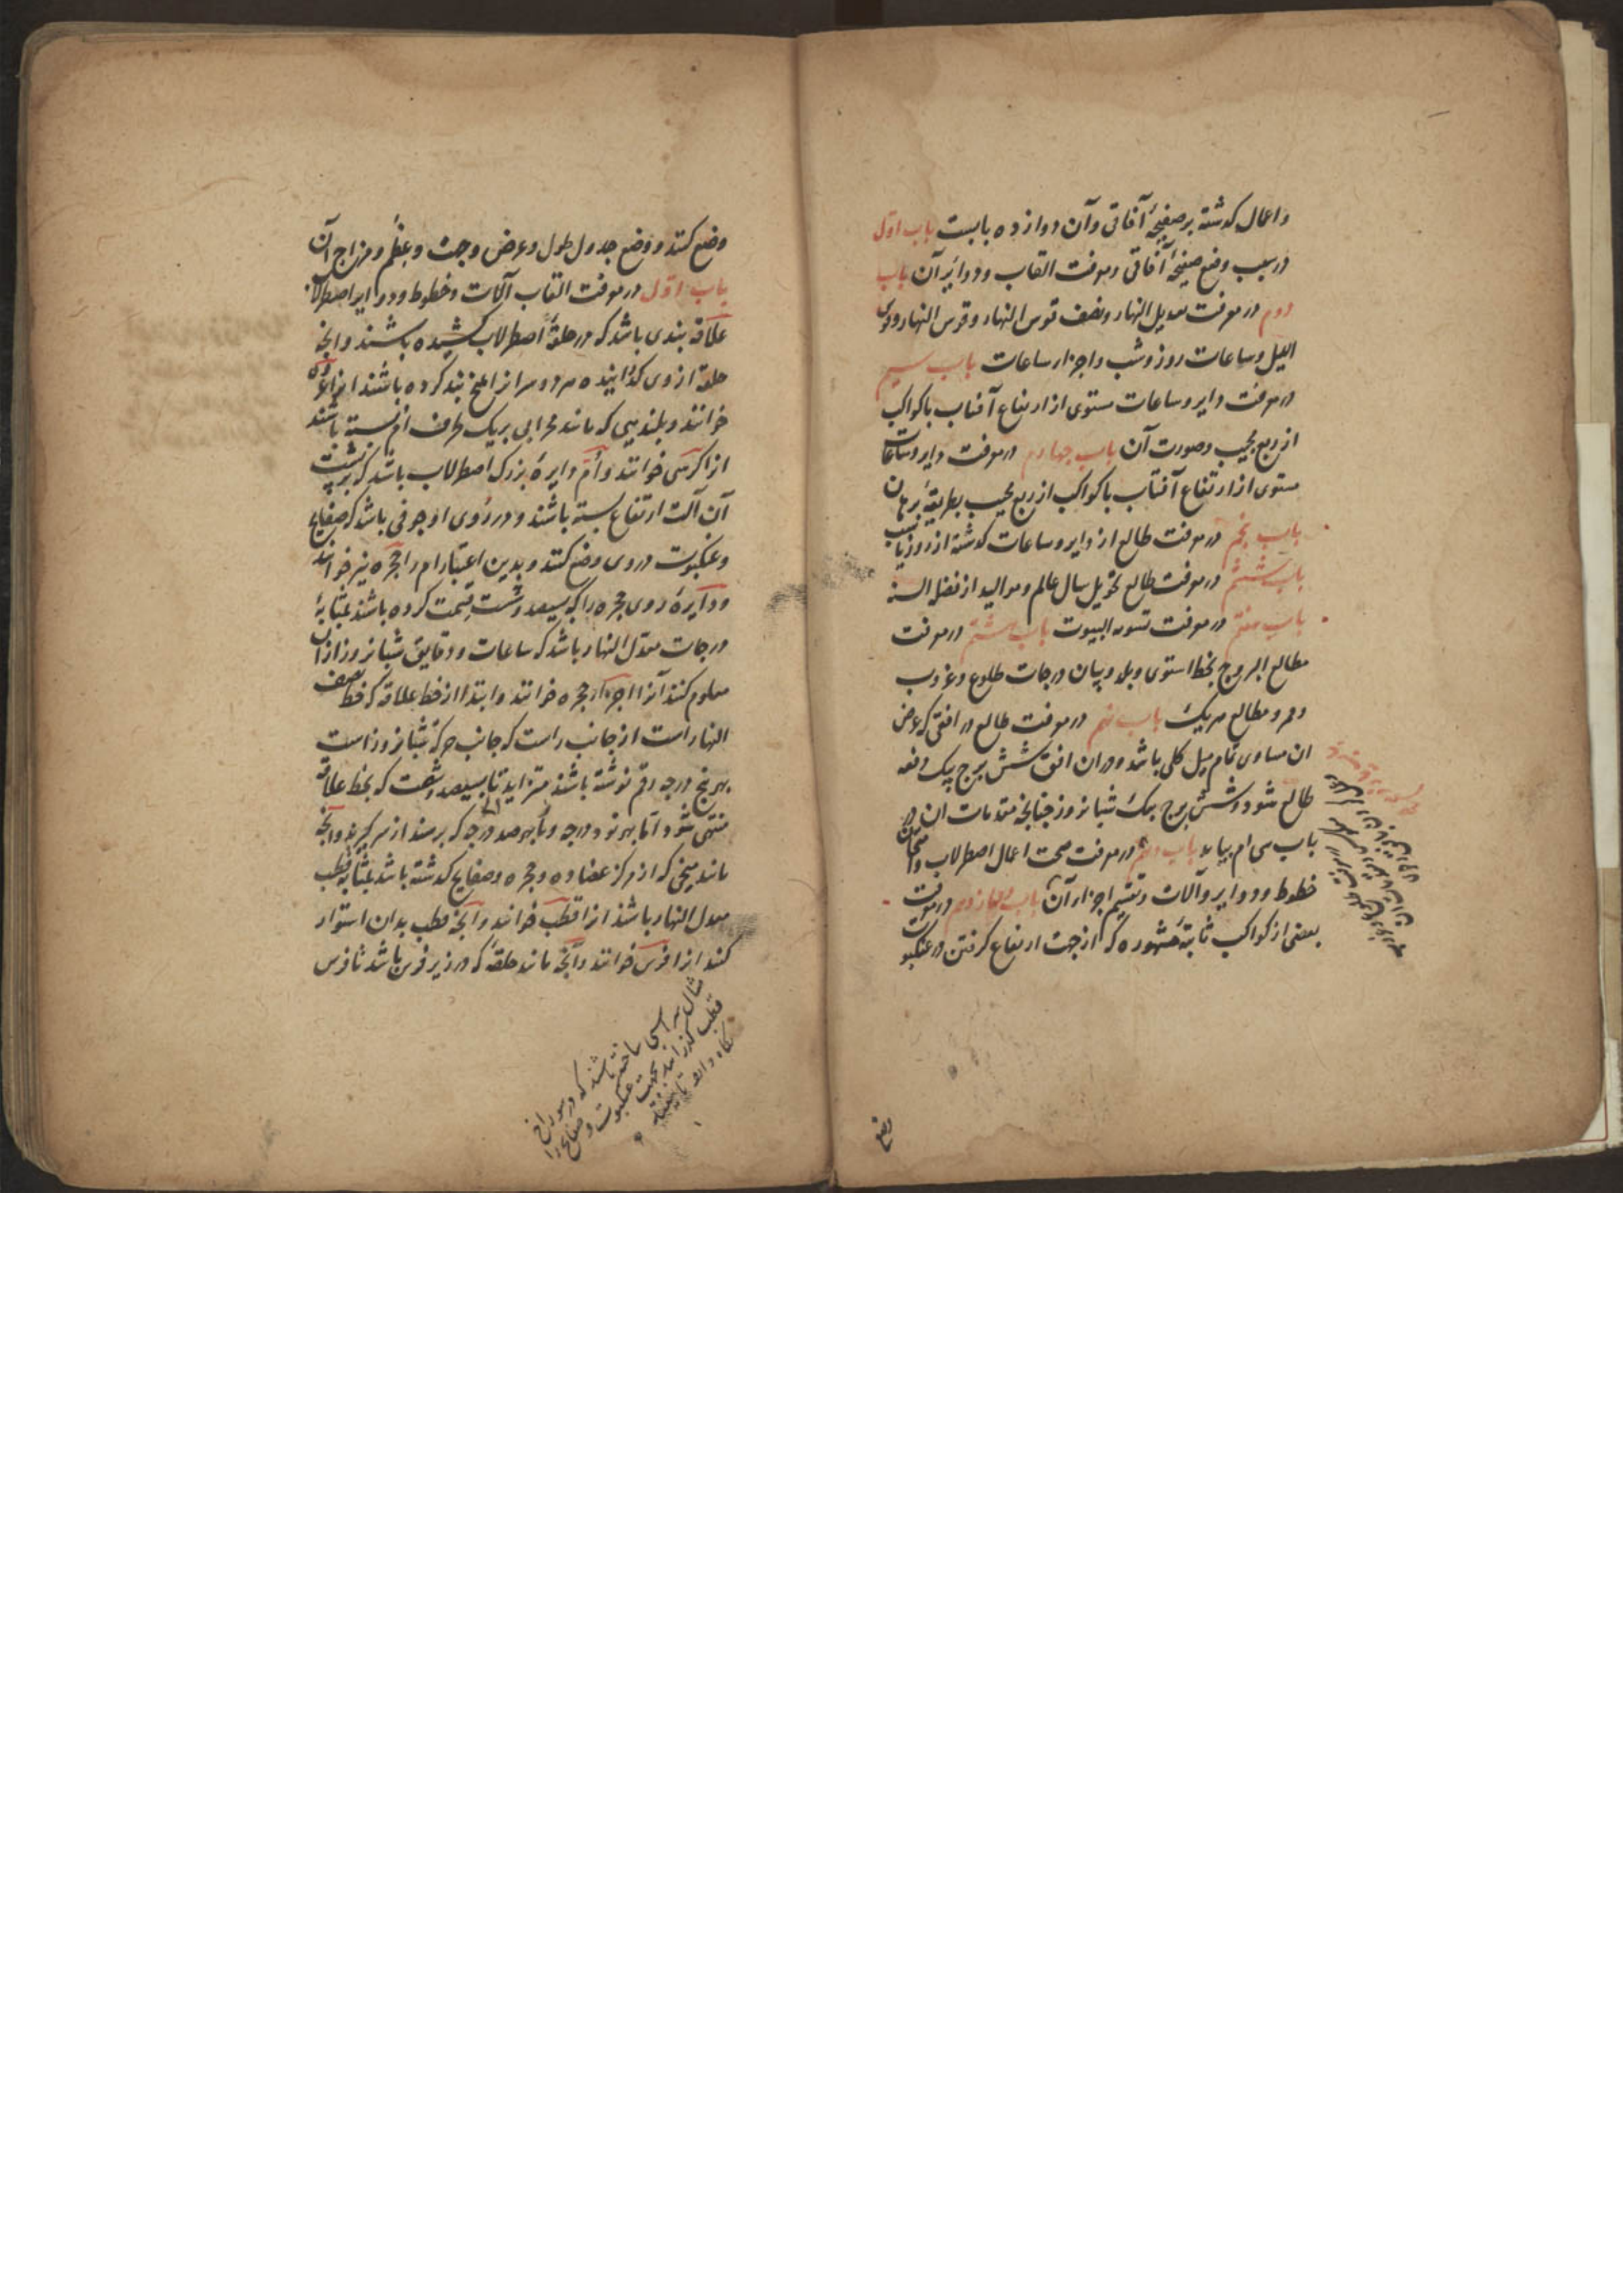 واعمال کدشته بر صفیحهٔ آفاقی وآن دوازده بابست باب اول
در سبب وضع صفیحهٔ آفاقی ومعرفت القاب ودوایر آن باب
دوم در معرفت تعدیل النهار ونصف قوس النهار وقوس النهار وقوس
اللیل وساعات روز وشب واجزاء ساعات باب سیم
در معرفت دایر وساعات مستوی از ارتفاع آفتاب یا کواکب
از ربع مجیب وصورت آن باب چهارم در معرفت دایر وساعات
مستوی از ارتفاع آفتاب یا کواکب از ربع مجیب بطریقهٔ برهان
باب پنجم در معرفت طالع از دایر وساعات کدشته از روز یا شب
باب ششم در معرفت طالع تحویل سال عالم وموالید از فضل السنه
باب هفتم در معرفت تسویه البیوت باب هشتم در معرفت
مطالع البروج بخط استوی وبلد وبیان درجات طلوع وغروب
وممر ومطالع هریک باب نهم در معرفت طالع در افقی که عرض
ان مساوی تمام میل کلی باشد ودران افق شش برج بیک دفعه
طالع شود وشش برج بیک شبانروز چنانجه مقدمات ان در
باب سی ام بیاید باب دهم در معرفت صحت اعمال اصطرلاب وامتحان
خطوط ودوایر وآلات وتقسیم اجزاء آن باب یازدهم در معرفت
بعضی از کواکب ثابتهٔ مشهوره که از جهت ارتفاع کرفتن در عنکبوت
وضع
وضع کنند ووضع جدول طول وعرض وجهت وعظم ومزاج آن
باب اول در معرفت القاب آلات وخطوط ودوایر اصطرلاب
علاقه بندی باشد که در حلقهٔ اصطرلاب کشیده باشند وانجه
حلقه از وی کدرانیده هر دو سر از المخ بند کرده باشند انرا عروه
خوانند وبلندیی که مانند محرابی بر یک طرف ام بسته باشند
انرا کرسی خوانند وام دایرهٔ بزرک اصطرلاب باشد که بر پشت
آن آلت ارتفاع بسته باشند ودر روی او جوفی باشد که صفایح
وعنکبوت در وی وضع کنند وبدین اعتبار ام را حجره نیز خوانند
ودایرهٔ روی حجره را که بسیصد وشست قسمت کرده باشند بمثابهٔ
درجات معدل النهار باشد که ساعات ودقایق شبانروز ازان
معلوم کنند آنرا اجزاء حجره خوانند وابتدا از خط علاقه که خط نصف
النهار است از جانب راست که جانب حرکه شبانروز است
بهر پنج درجه رقم نوشته باشند متزاید تا بسیصد وشصت که بخط علاقه
منتهی شود اما بهر نود درجه ویا بهر صد درجه که برسند از سر کیرند وانجه
مانند میخی که از مرکز عضاده وحجره وصفایح کدشته باشد بمثابه قطب
معدل النهار باشد انرا قطب خوانند وانجه قطب بدان استوار
کنند انرا فرس خوانند وانجه مانند حلقهٔ که در زیر فرس باشد تا فرس
مثال سر اسبی ساخته باشند که در سوراخ
قطب کذرانند بجهت عنکبوت وصفایح را
نکاه دارد تا نیفتد